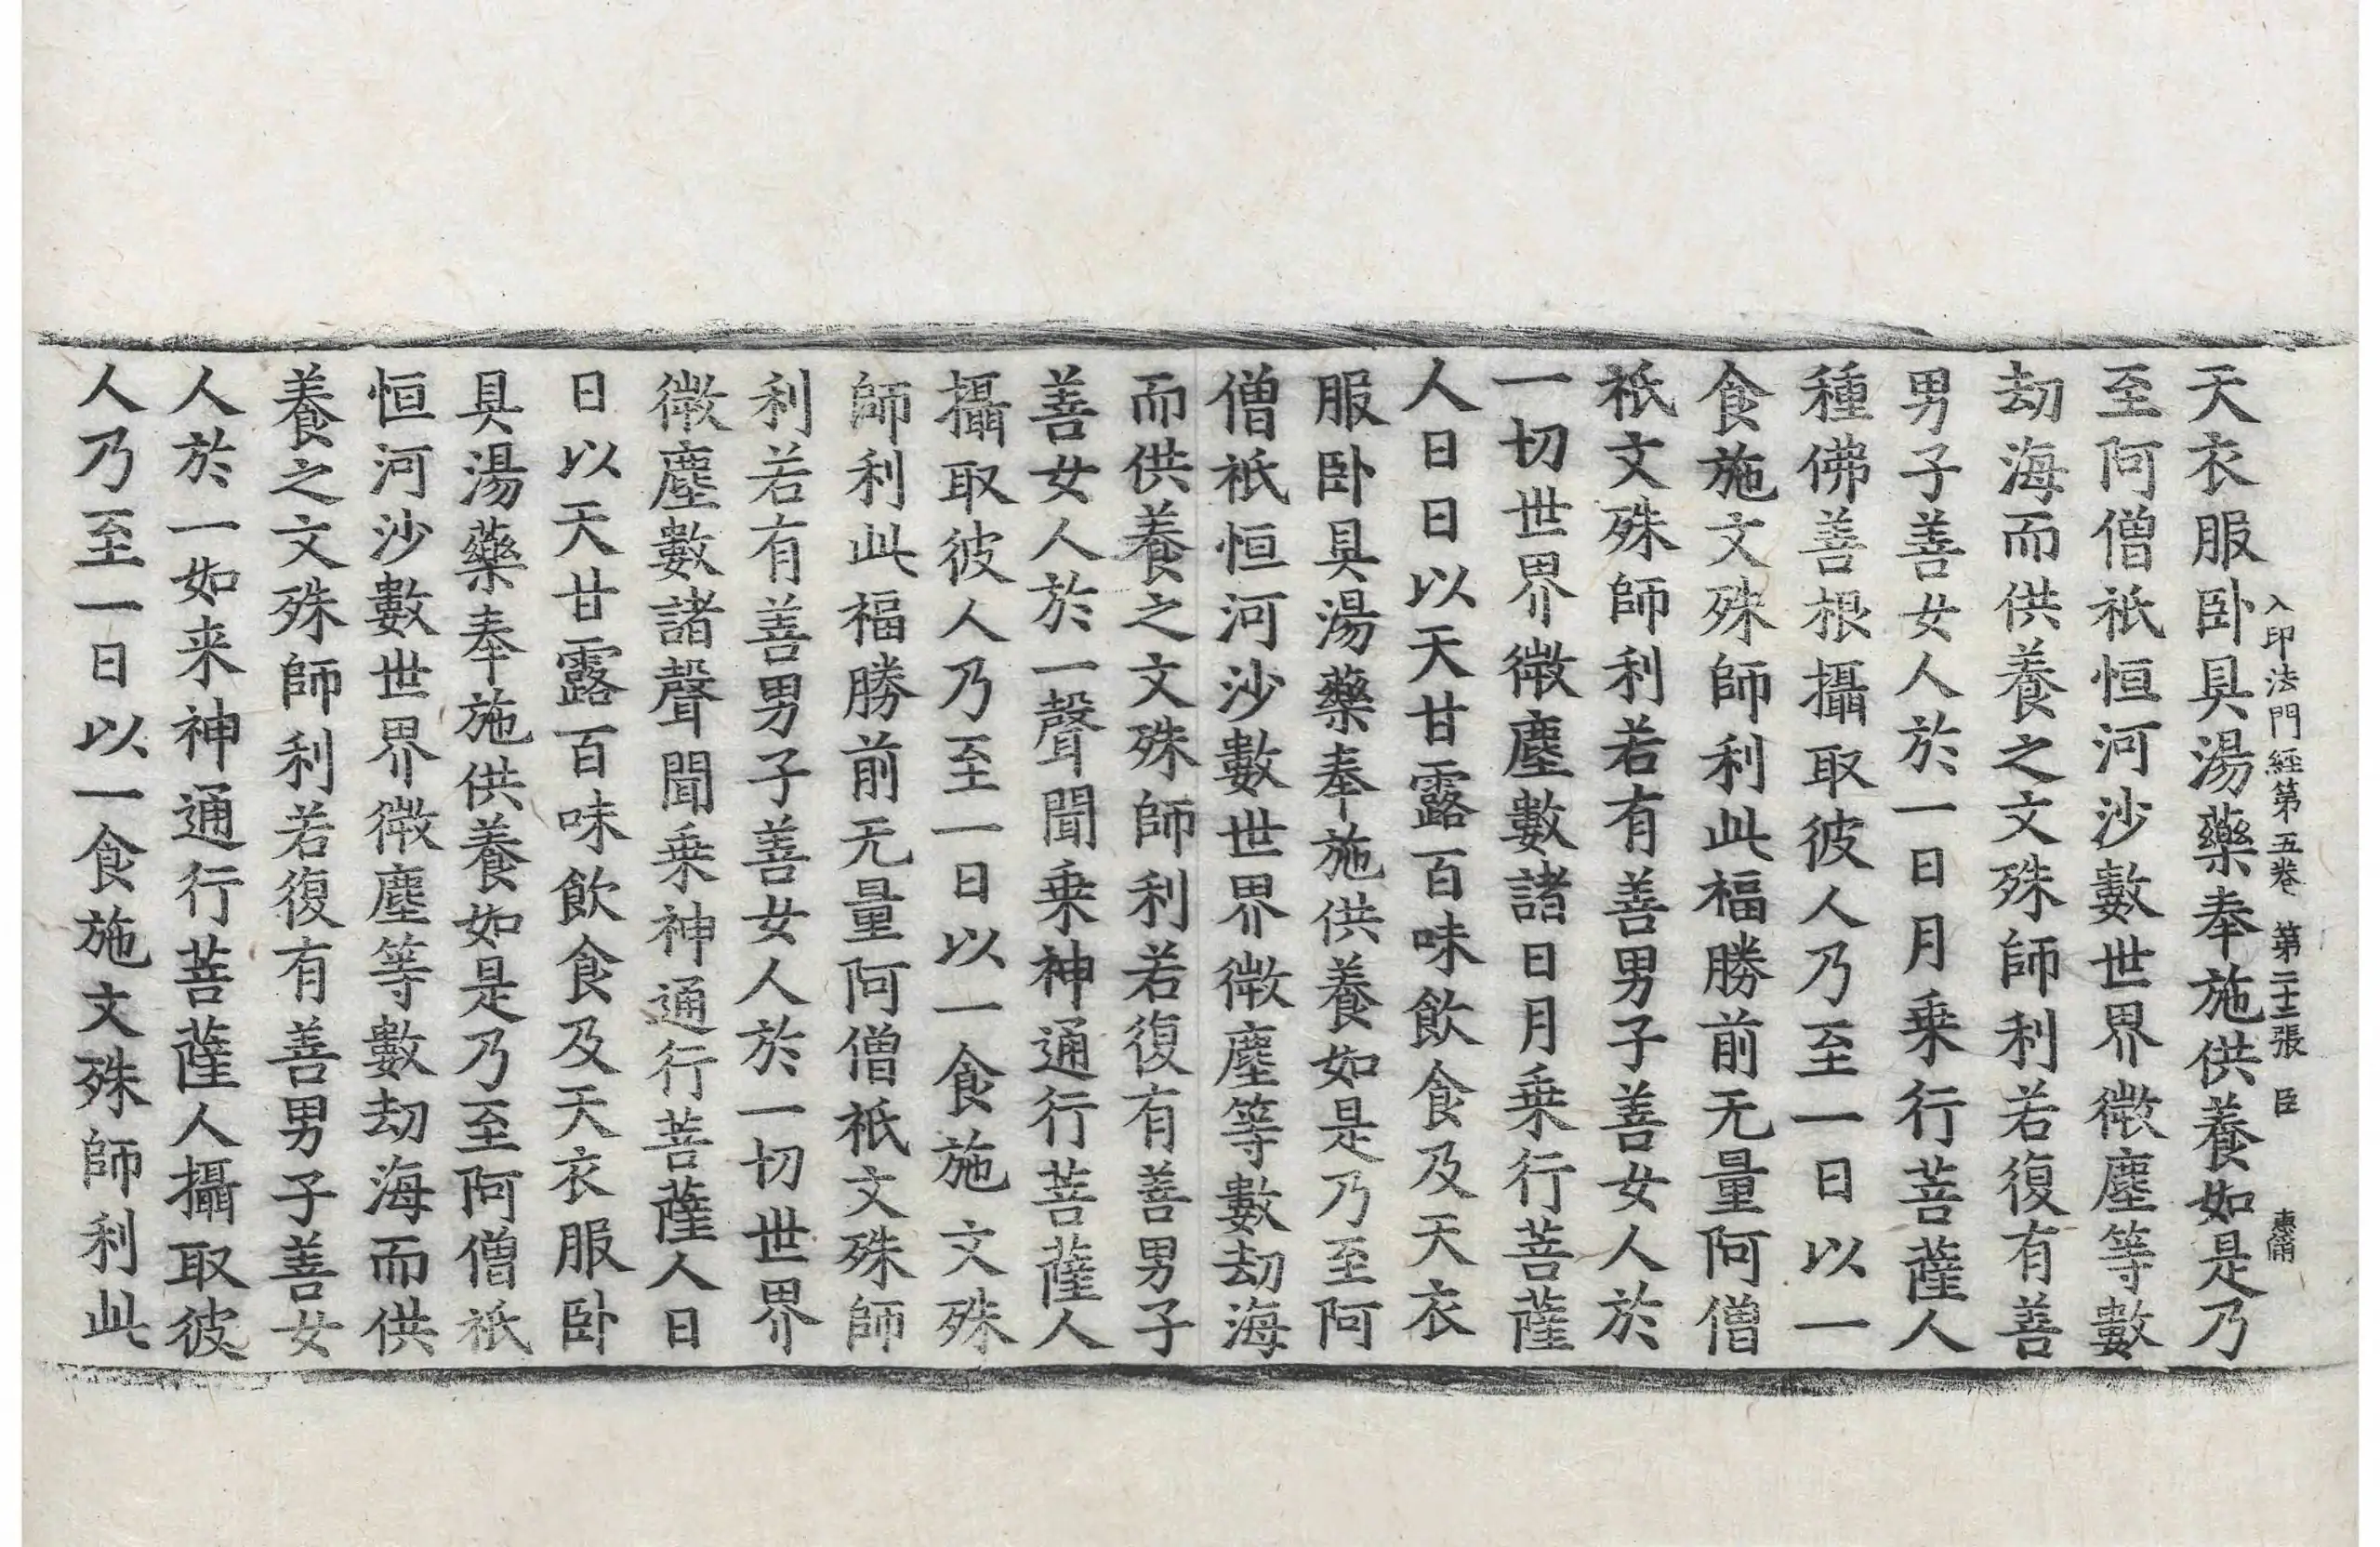 入印法門經第五卷 第二十二張 臣
天衣服卧具湯藥奉施供養如是乃
至阿僧祇恒河沙數世界微塵等數
劫海而供養之文殊師利若復有善
男子善女人於一日月乗行菩薩人
種佛善根攝取彼人乃至一日以一
食施文殊師利此福勝前无量阿僧
祇文殊師利若有善男子善女人於
一切世界微塵數諸日月乗行菩薩
人日日以天甘露百味飲食及天衣
服卧具湯藥奉施供養如是乃至阿
僧祇恒河沙數世界微塵等數劫海
而供養之文殊師利若復有善男子
善女人於一聲聞乗神通行菩薩人
攝取彼人乃至一日以一食施文殊
師利此福勝前无量阿僧祇文殊師
利若有善男子善女人於一切世界
微塵數諸聲聞乗神通行菩薩人日
日以天甘露百味飲食及天衣服卧
具湯藥奉施供養如是乃至阿僧祇
恒河沙數世界微塵等數劫海而供
養之文殊師利若復有善男子善女
人於一如来神通行菩薩人攝取彼
人乃至一日以一食施文殊師利此